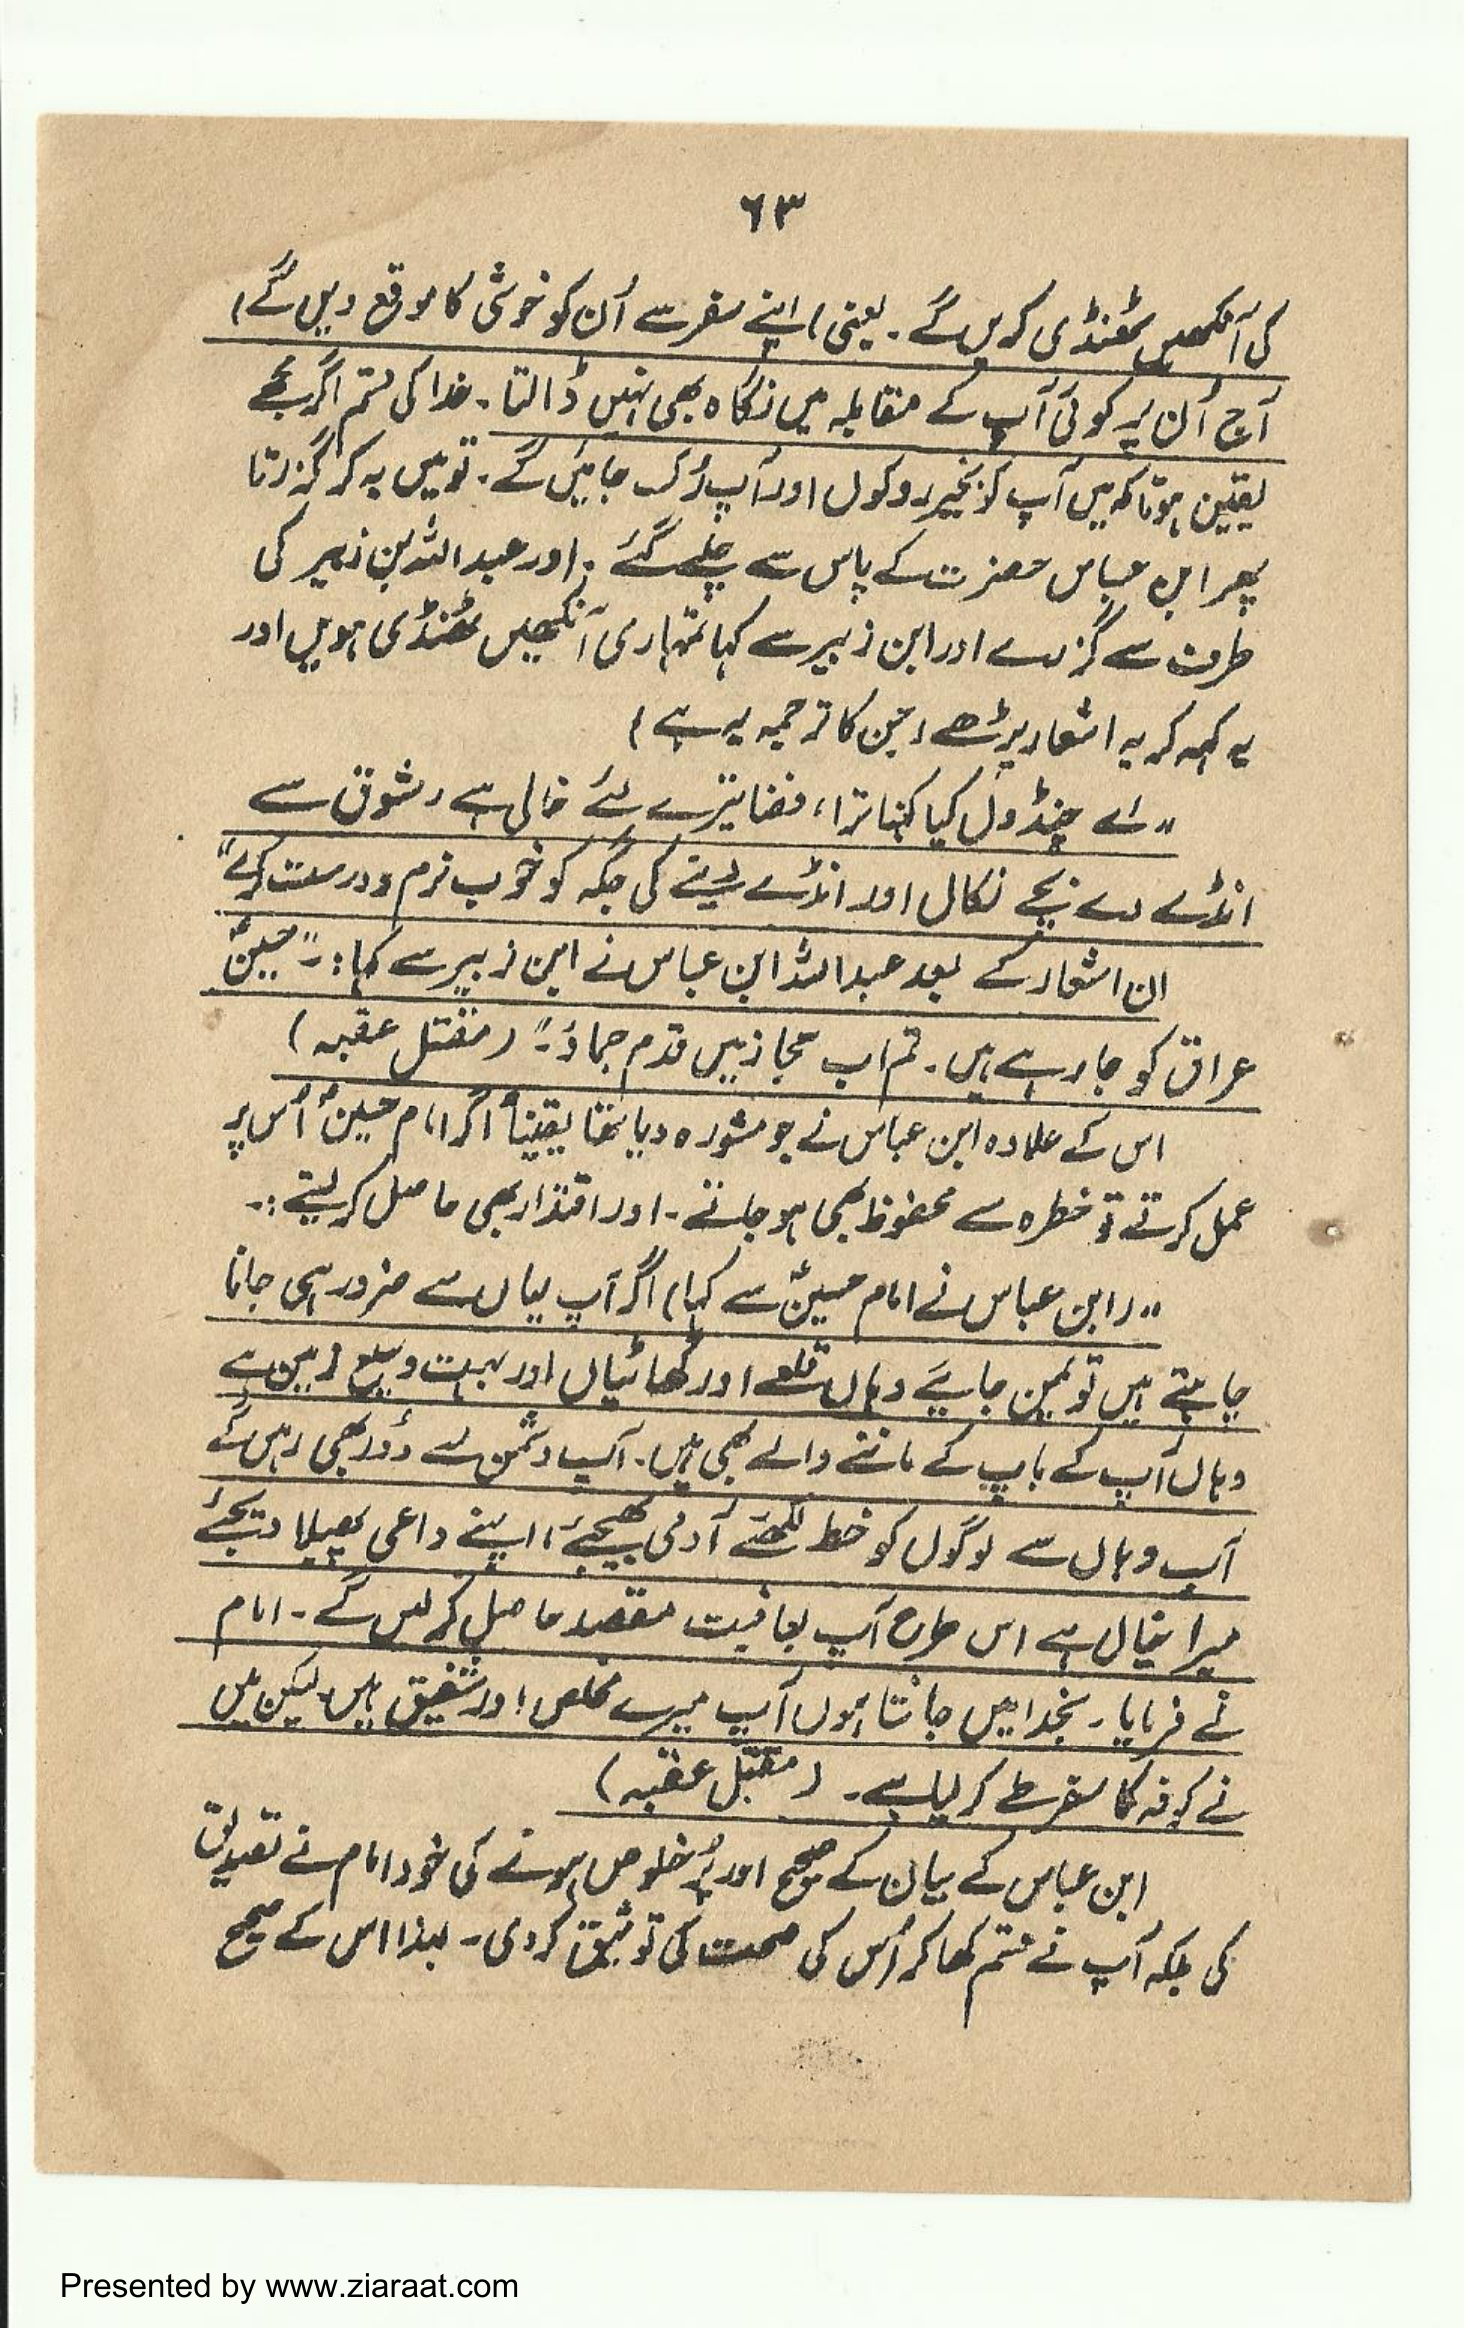 ۶۳
کی آنکھیں ٹھنڈی کریں گے ۔ یعنی (اپنے سفر سے اُن کو خوشی کا موقع دیں گے)
آج اُن پر کوئی آپ کے مقابلہ میں نگاہ بھی نہیں ڈالتا ۔ خدا کی قسم اگر مجھے
یقین ہوتا کہ میں آپ کو بخیر روکوں اور آپ رُک جائیں گے ۔ تو میں یہ کر گزرتا
پھر ابن عباس حضرت کے پاس سے چلے گئے ۔ اور عبداللہ بن زبیر کی
طرف سے گزرے اور ابن زبیر سے کہا تمہاری آنکھیں ٹھنڈی ہویں اور
یہ کہہ کر یہ اشعار پڑھے (جن کا ترجمہ یہ ہے)
"اے چنڈول کیا کہنا ترا، فضا تیرے لئے خالی ہے، شوق سے
انڈے دے بچے نکال اور انڈے دینے کی جگہ کو خوب نرم و درست کرلے"
ان اشعار کے بعد عبداللہ ابن عباس نے ابن زبیر سے کہا :۔ "حسینؑ
عراق کو جا رہے ہیں ۔ تم اب حجاز میں قدم جماؤ ۔" (مقتل عقبہ)
اس کے علاوہ ابن عباس نے جو مشورہ دیا تھا یقیناً اگر امام حسینؑ اُس پر
عمل کرتے تو خطرہ سے محفوظ بھی ہو جاتے ۔ اور اقتدار بھی حاصل کر لیتے :۔
"(ابن عباس نے امام حسینؑ سے کہا) اگر آپ یہاں سے ضرور ہی جانا
چاہتے ہیں تو یمن جایئے وہاں قلعے اور گھاٹیاں اور بہت وسیع زمین ہے
وہاں آپ کے باپ کے ماننے والے بھی ہیں ۔ آپ دشمن سے دُور بھی رہیں گے
آپ وہاں سے لوگوں کو خط لکھئے آدمی بھیجئے، اپنے داعی پھیلا دیجئے
میرا خیال ہے اس طرح آپ بعافیت مقصد حاصل کرلیں گے ۔ امام
نے فرمایا ۔ بخدا میں جانتا ہوں آپ میرے مخلص اور شفیق ہیں لیکن میں
نے کوفہ کا سفر طے کر لیا ہے ۔ (مقتل عقبہ)
ابن عباس کے بیان کے صحیح اور پُر خلوص ہونے کی خود امام نے تصدیق
کی بلکہ آپ نے قسم کھا کر اُس کی صحت کی توثیق کردی ۔ لہٰذا اس کے صحیح
Presented by www.ziaraat.com